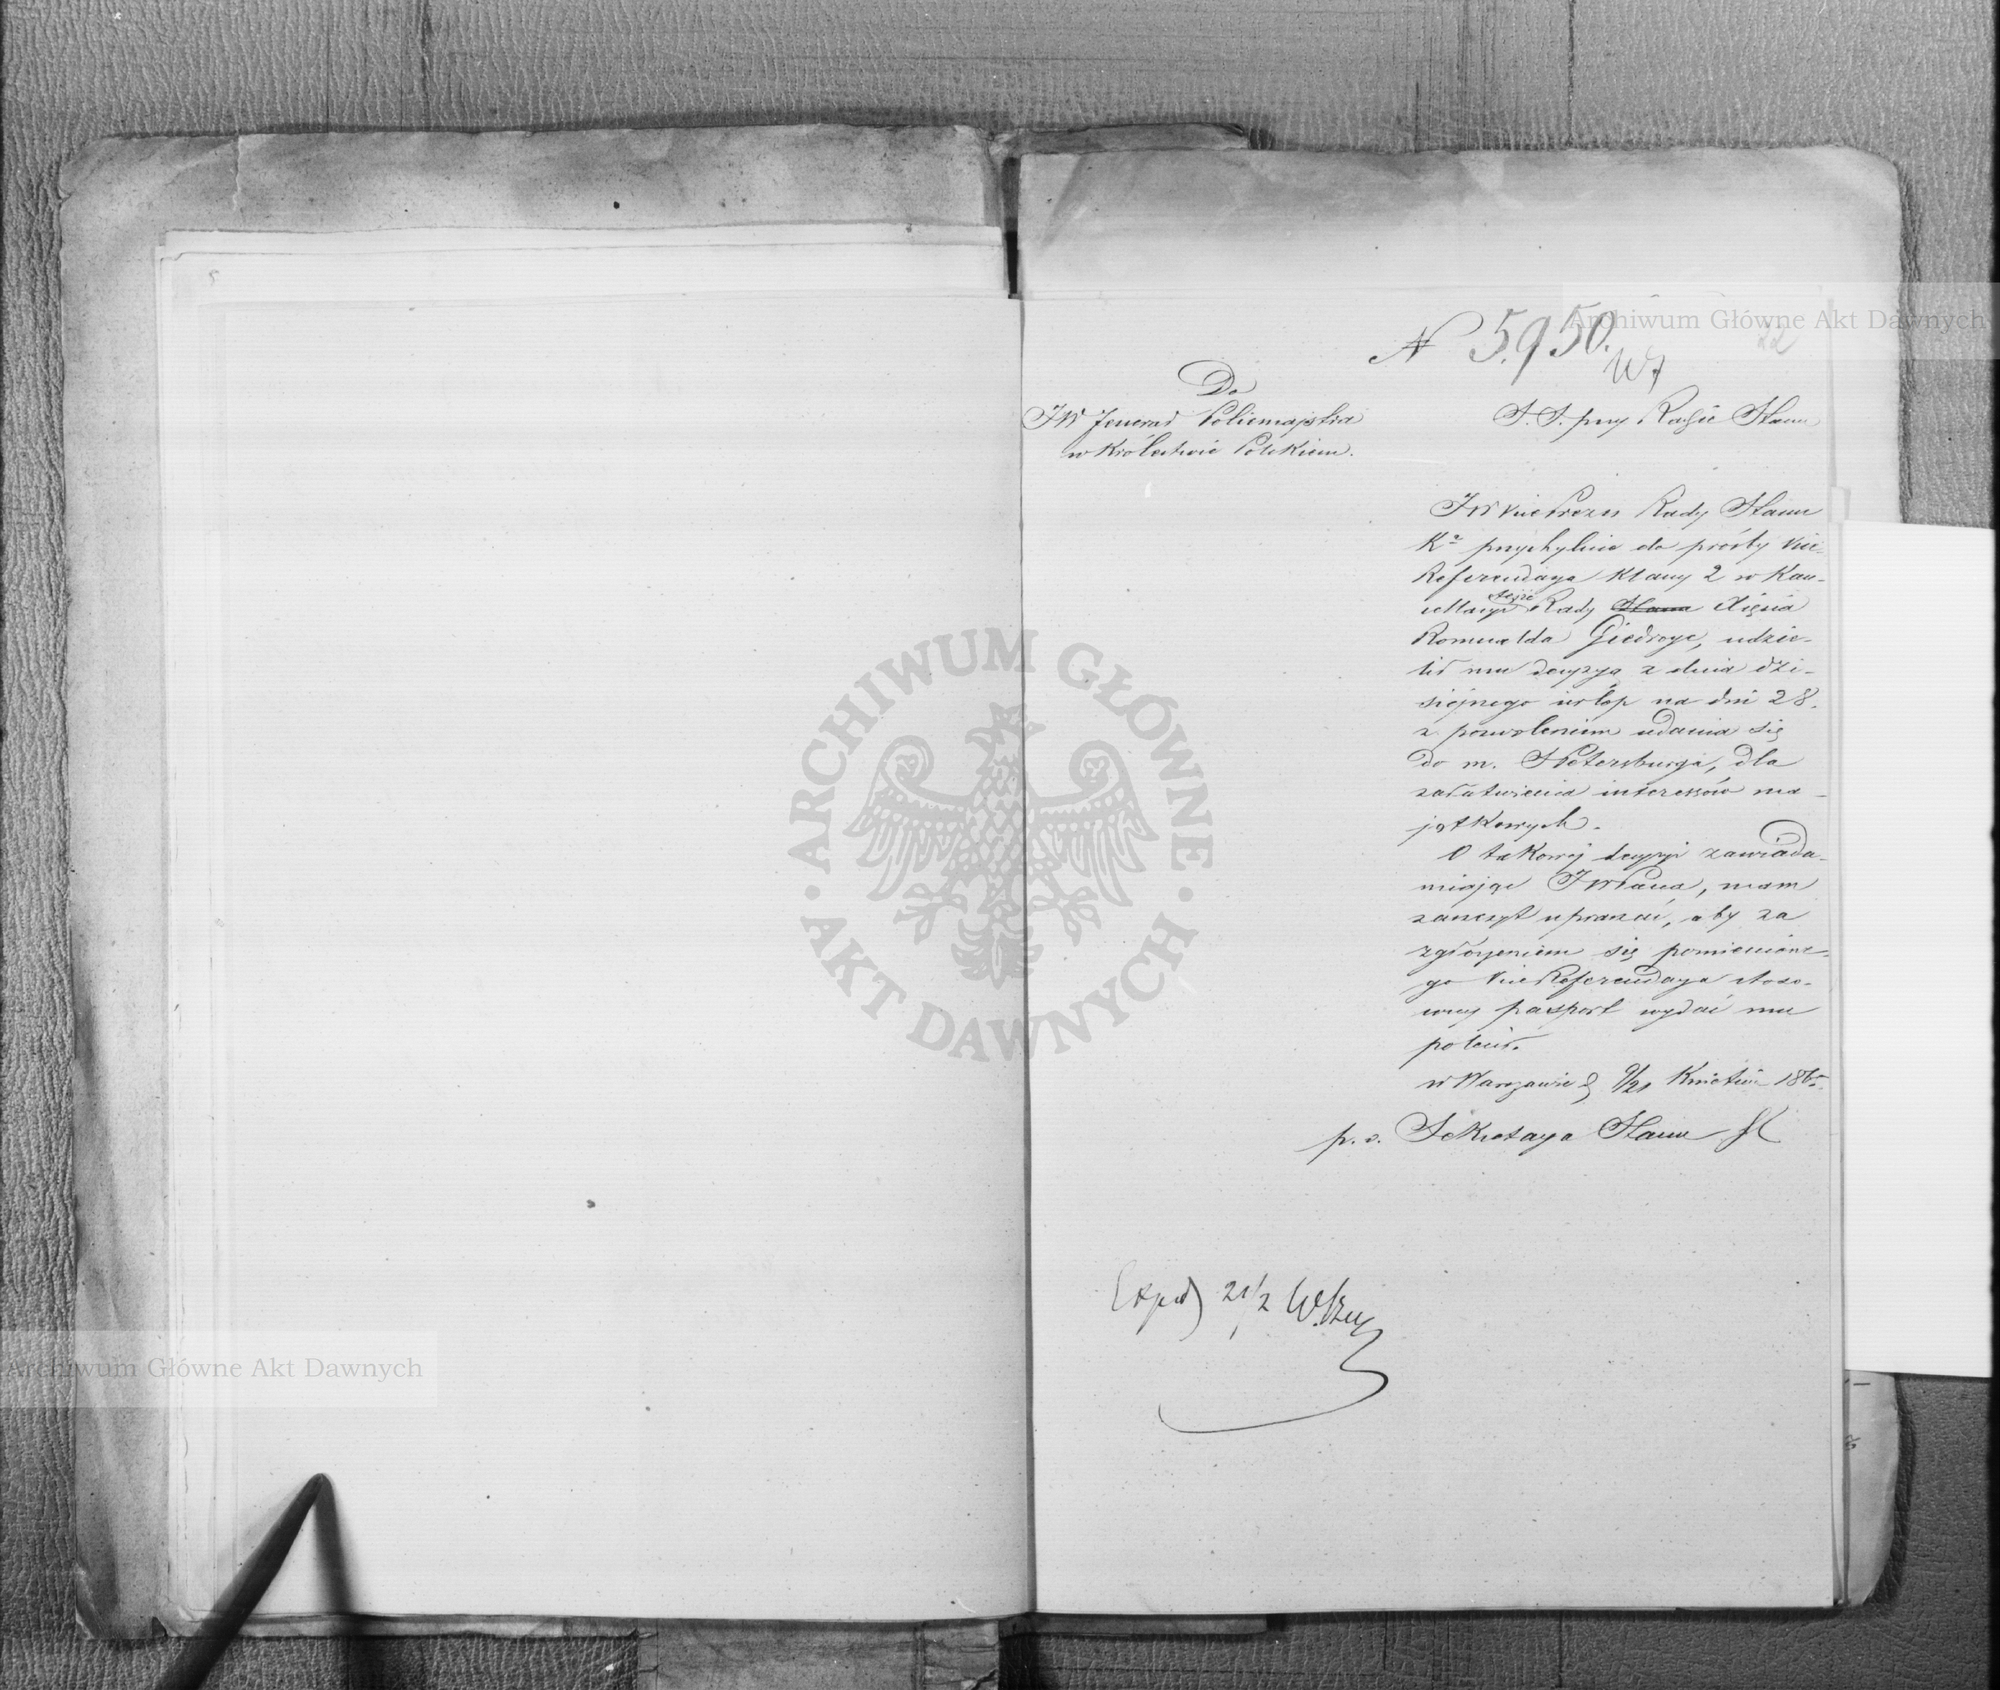 Archiwum Główne Akt Dawnych
22
N 5,950.
Do
JW Jenerał Policmajstra
w Królestwie Polskiem.
S. S. przy Radzie Stanu
JW VicePrezes Rady Stanu
Kª przychylnie do prośby Vice-
Referendarza klassy 2 w Kan-
cellaryi tejże Rady Stanu Xięcia
Romualda Giedroyc, udzie-
lił mu decyzyą z dnia dzi-
siejszego urlop na dni 28.
z pozwoleniem udania się
do m. S Petersburga, dla
załatwienia interessów ma-
jątkowych.
O takowej decyzyi zawiada-
miając JWPana, mam
zaszczyt upraszać, aby za
zgłoszeniem się pomienione-
go ViceReferendarza stoso-
wny paszport wydać mu
polecił.
w Warszawie d 9/21 Kwietnia 186
p. o. Sekretarza Stanu
Exped 21/2
ARCHIWUM GŁÓWNE
AKT DAWNYCH
Archiwum Główne Akt Dawnych